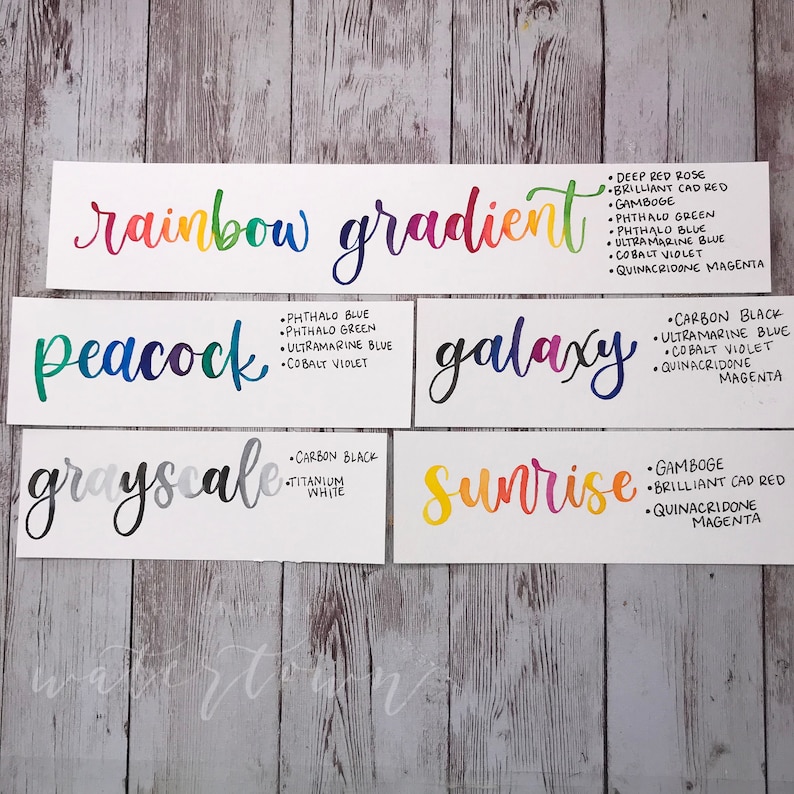 rainbow gradient
• DEEP RED ROSE
• BRILLIANT CAD RED
• GAMBOGE
• PHTHALO GREEN
• PHTHALO BLUE
• ULTRAMARINE BLUE
• COBALT VIOLET
• QUINACRIDONE MAGENTA
peacock
• PHTHALO BLUE
• PHTHALO GREEN
• ULTRAMARINE BLUE
• COBALT VIOLET
galaxy
• CARBON BLACK
• ULTRAMARINE BLUE
• COBALT VIOLET
• QUINACRIDONE
MAGENTA
grayscale
• CARBON BLACK
• TITANIUM
WHITE
sunrise
• GAMBOGE
• BRILLIANT CAD RED
• QUINACRIDONE
MAGENTA
watertown